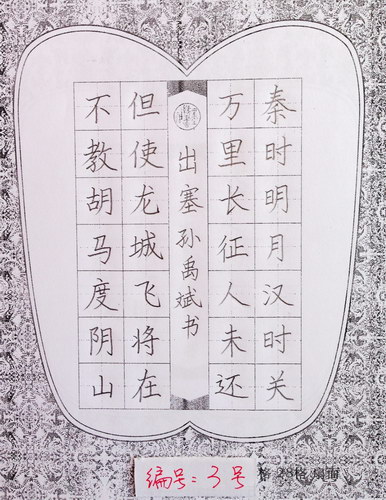 秦时明月汉时关
万里长征人未还
出塞 孙禹斌书
但使龙城飞将在
不教胡马度阴山
编号:3号
格 28格 扇面